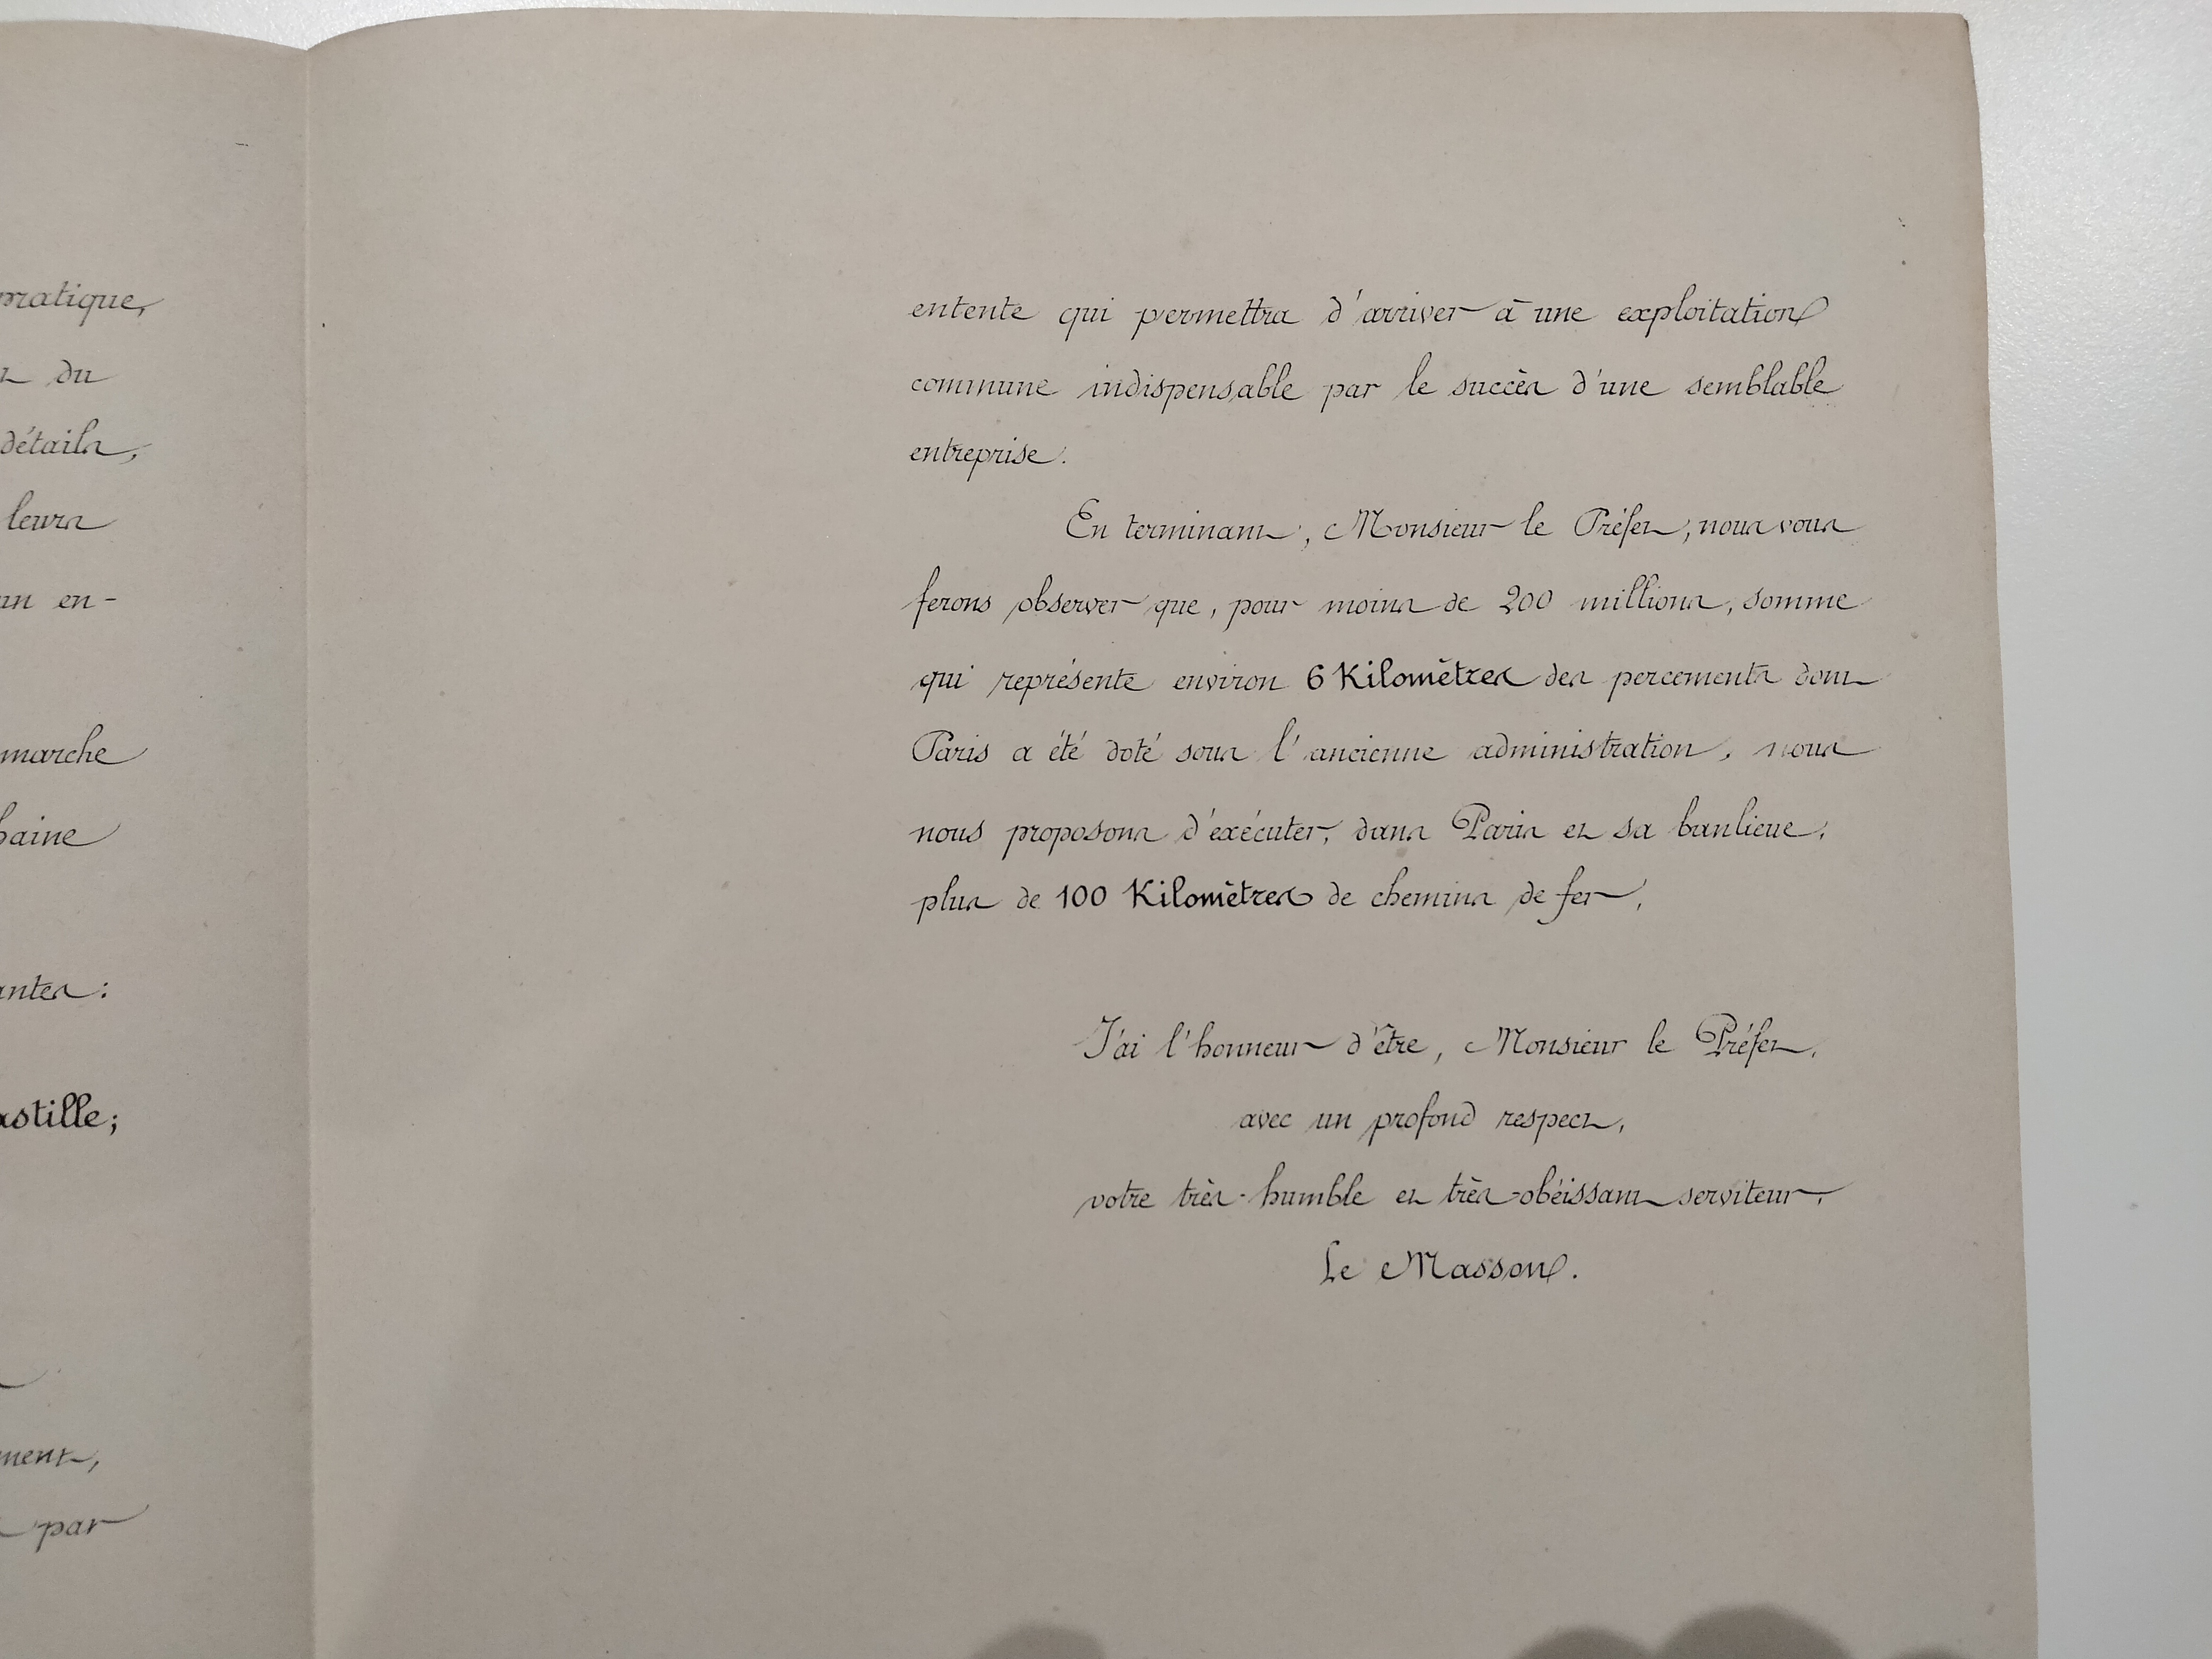 pratique,
du
détails,
leurs
un en-
marche
baine
antes:
astille;
ment,
par
entente qui permettra d'arriver à une exploitation
commune indispensable par le succès d'une semblable
entreprise.
En terminant, Monsieur le Préfet, nous vous
ferons observer que, pour moins de 200 millions, somme
qui représente environ 6 Kilomètres des percements dont
Paris a été doté sous l'ancienne administration, nous
nous proposons d'exécuter, dans Paris et sa banlieue,
plus de 100 Kilomètres de chemins de fer.
J'ai l'honneur d'être, Monsieur le Préfet,
avec un profond respect,
votre très-humble et très-obéissant serviteur,
Le Masson.